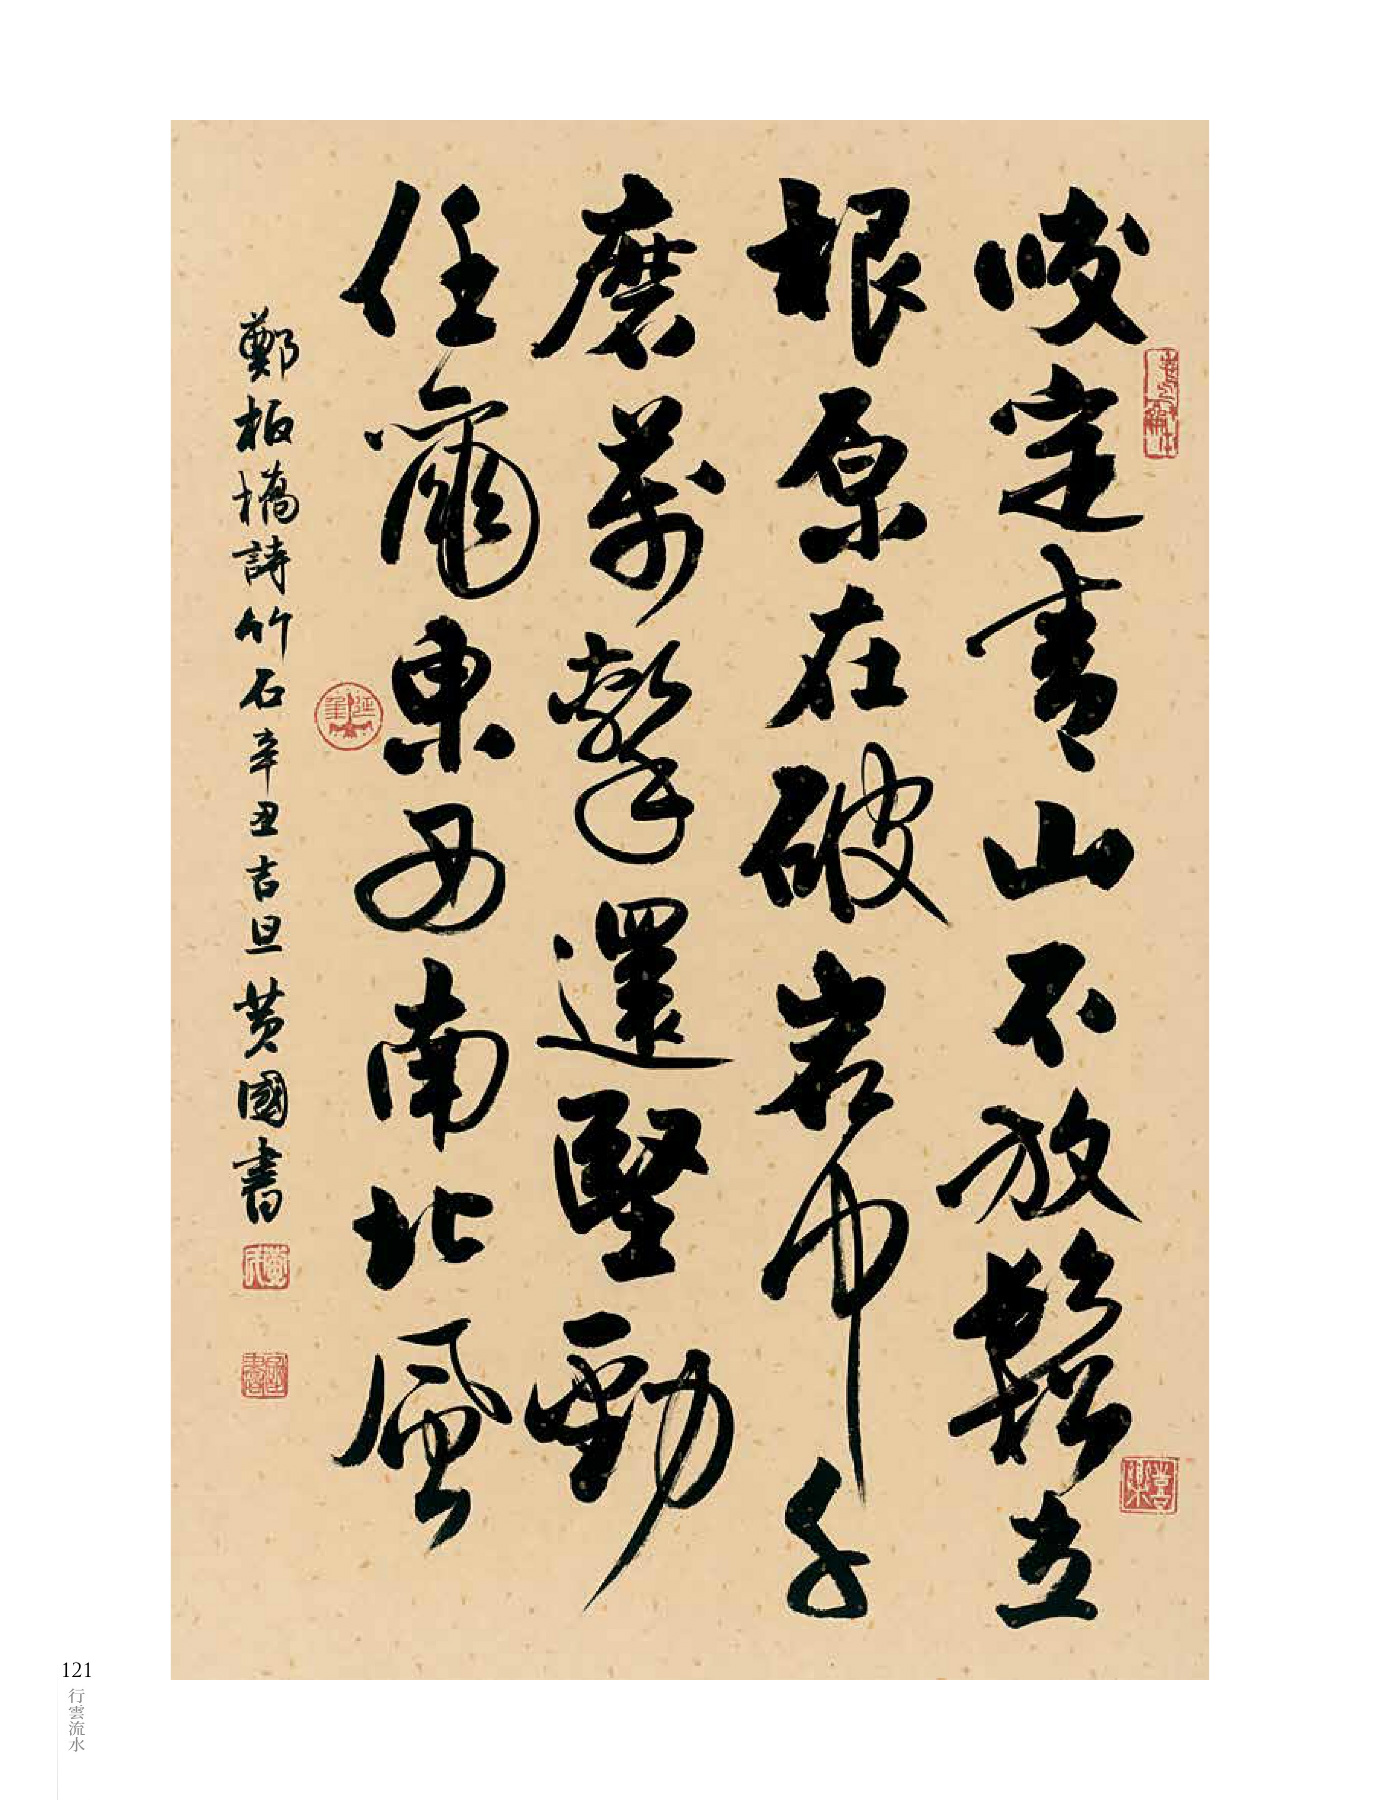 咬定青山不放鬆立
根原在破岩中千
磨萬擊還堅勁
任爾東西南北風
鄭板橋詩竹石辛丑吉旦黄國書
121
行雲流水